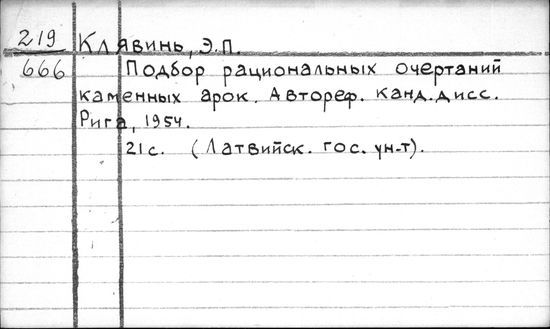 219 Клявинь, Э.П.
666 Подбор рациональных очертаний
каменных арок. Автореф. канд. дисс.
Рига, 1954.
21 с. (Латвийск. гос. ун-т).